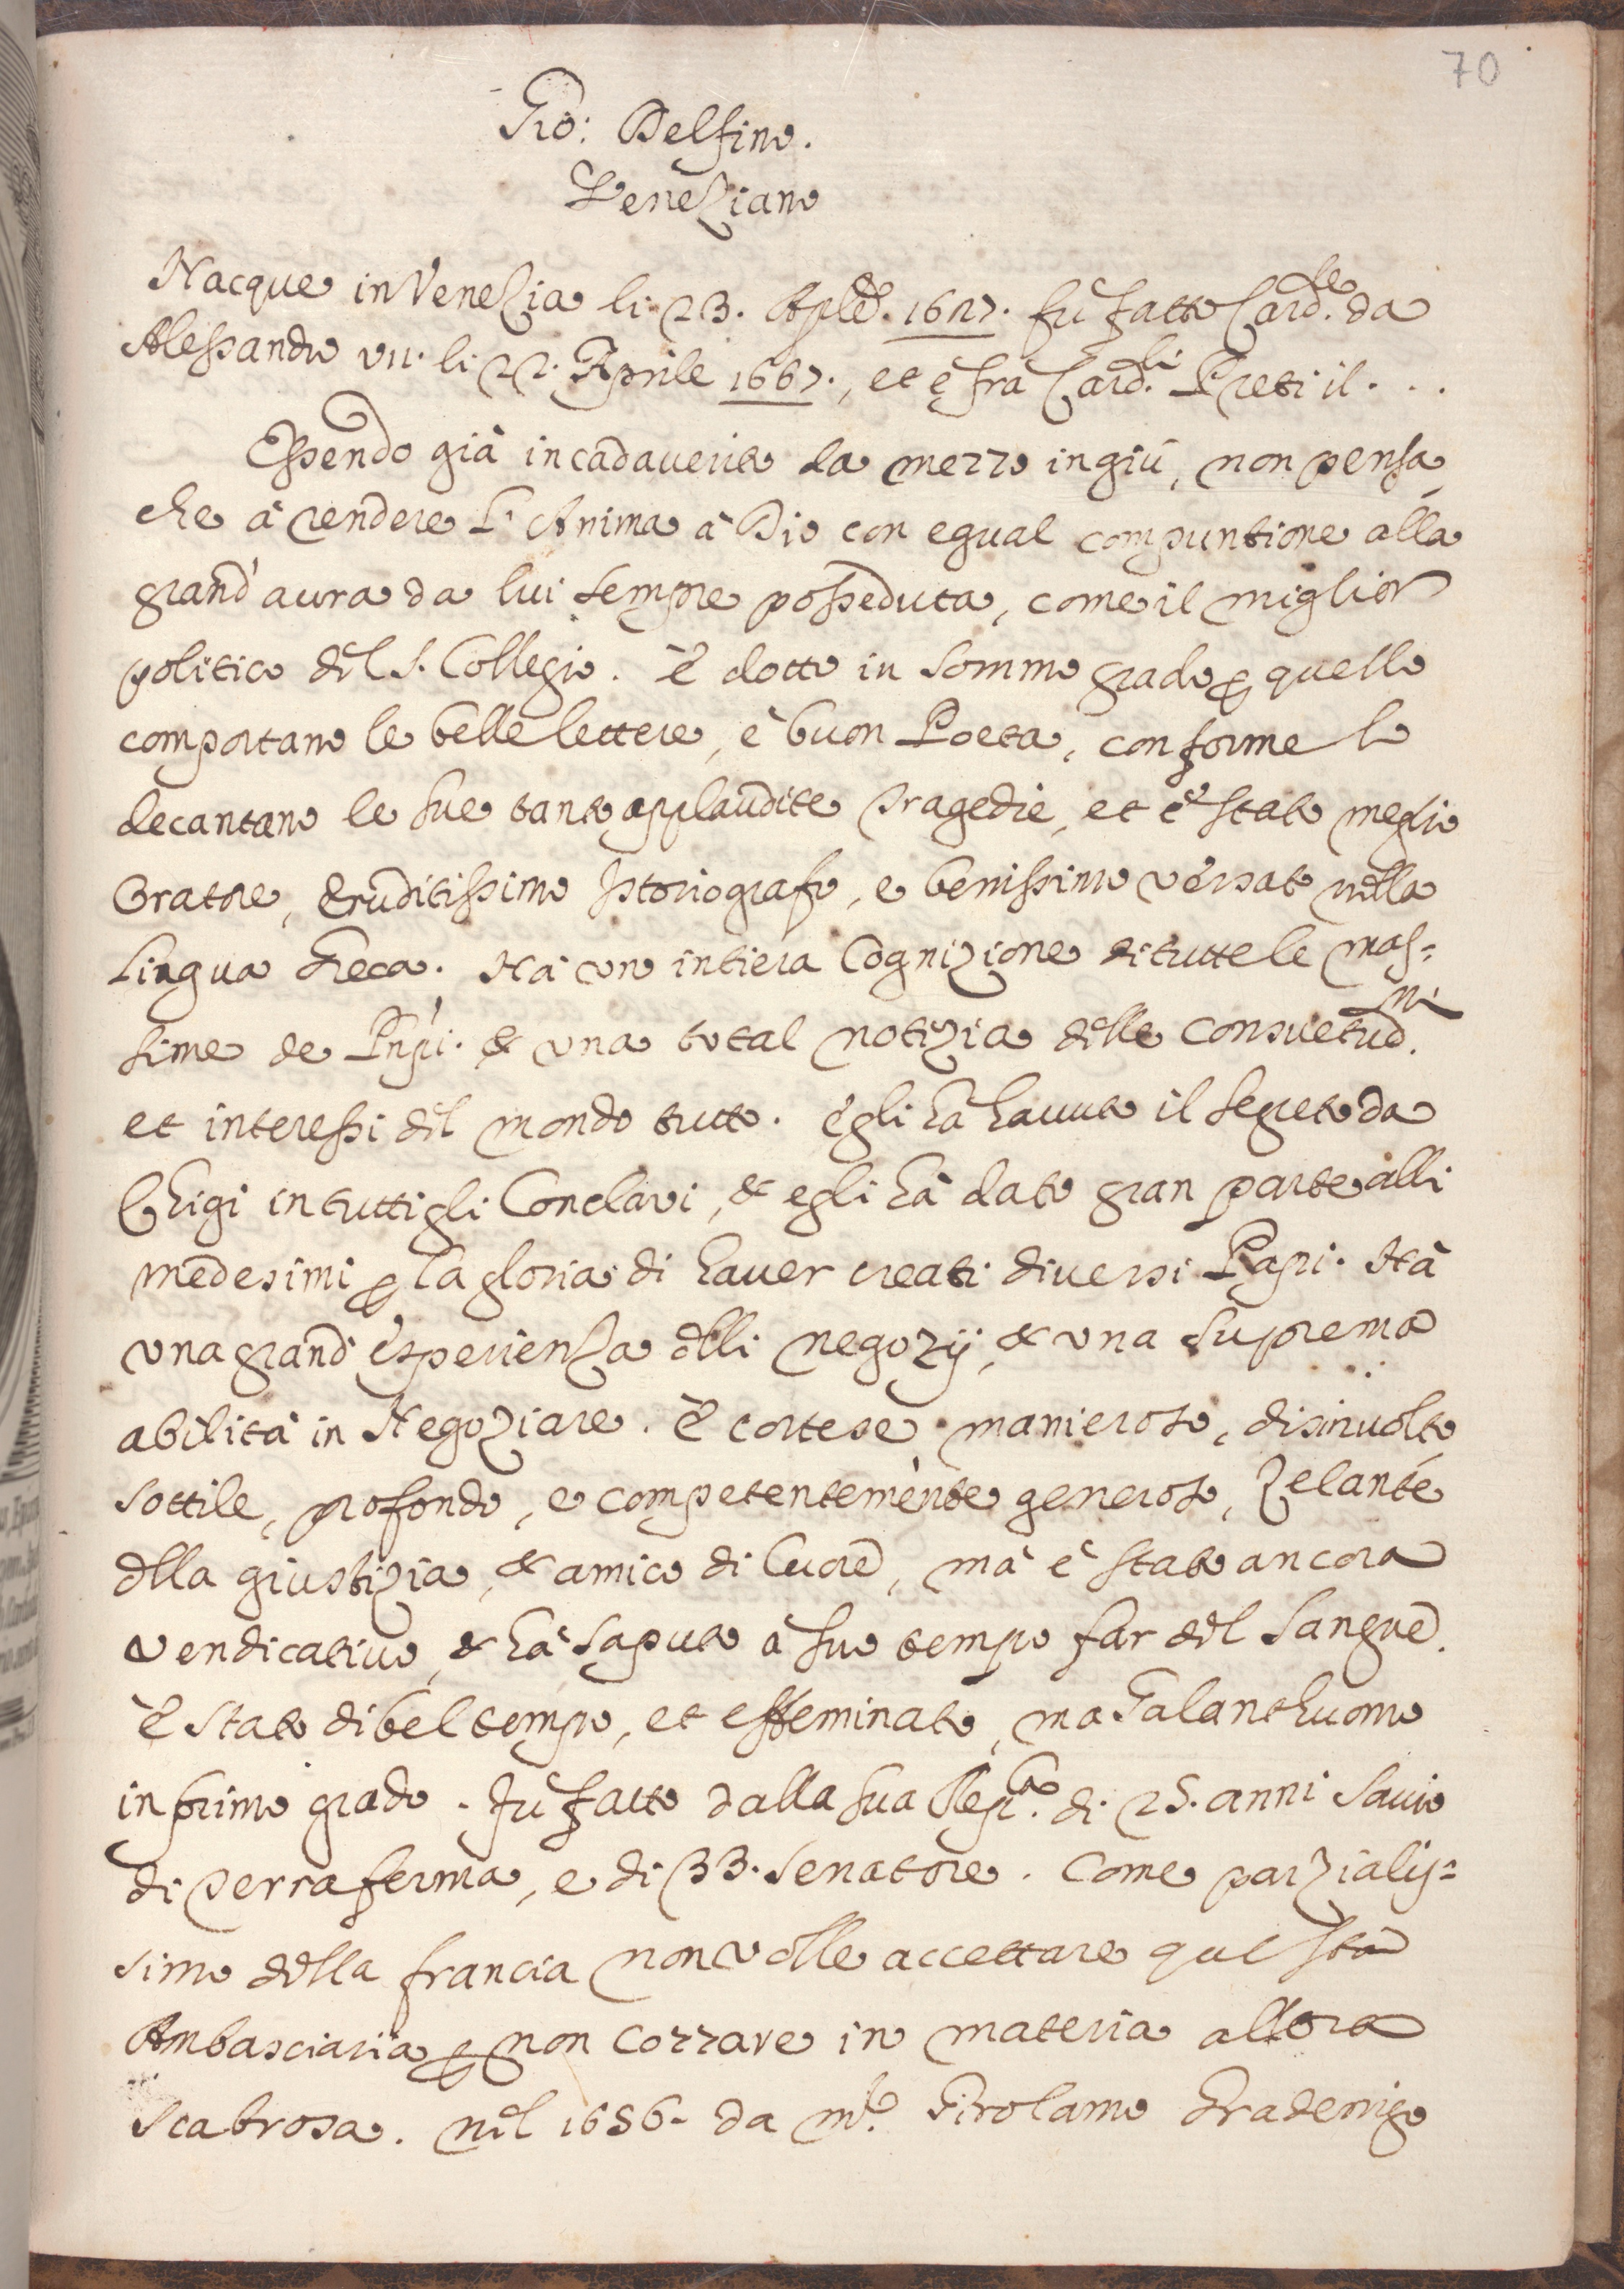 70
Gio: Delfino.
Veneziano
Nacque in Venezia li 23. Aple. 1627. fù fatto Card.le da
Alessandro VII. li 22. Aprile 1667., et è fra Card.li Preti il . . .
Essendo già incadaverito da mezzo in giù, non pensa
che à rendere l'Anima à Dio con egual compuntione alla
grand'aura da lui sempre posseduta, come il miglior
politico del S. Collegio. È dotto in sommo grado p quello
comportano le belle lettere, è buon Poeta, conforme lo
decantano le sue tanto applaudite Tragedie, et è stato meglio
Oratore, Eruditissimo Istoriografo, e benissimo versato nella
Lingua Greca. Hà un intiera Cognizione di tutte le mas=
sime de Pnpi. & una total notizia delle consuetud.ni
et interessi del mondo tutto. Egli hà havuto il segreto da
Chigi in tutti gli Conclavi, & egli hà dato gran parte alli
medesimi p la gloria di haver creati diversi Papi. Hà
una grand'esperienza delli negozij, & una suprema
abilità in Negoziare. È cortese, manieroso, disinvolto,
sottile, profondo, e competentemente generoso, Zelante
della giustizia, & amico di Cuore, mà è stato ancora
vendicativo, & hà saputo à suo tempo far del sangue.
È stato di bel tempo, et effeminato, ma Galanthuomo
in primo grado. Fù fatto dalla sua Rep.ca di 25. anni Savio
di Terra ferma, e di 33. Senatore. Come parzialis=
simo della francia non volle accettare questa
Ambasciaria p non cozzare in materia allora
scabrosa. Nel 1656. da m.e Girolamo Gradenigo